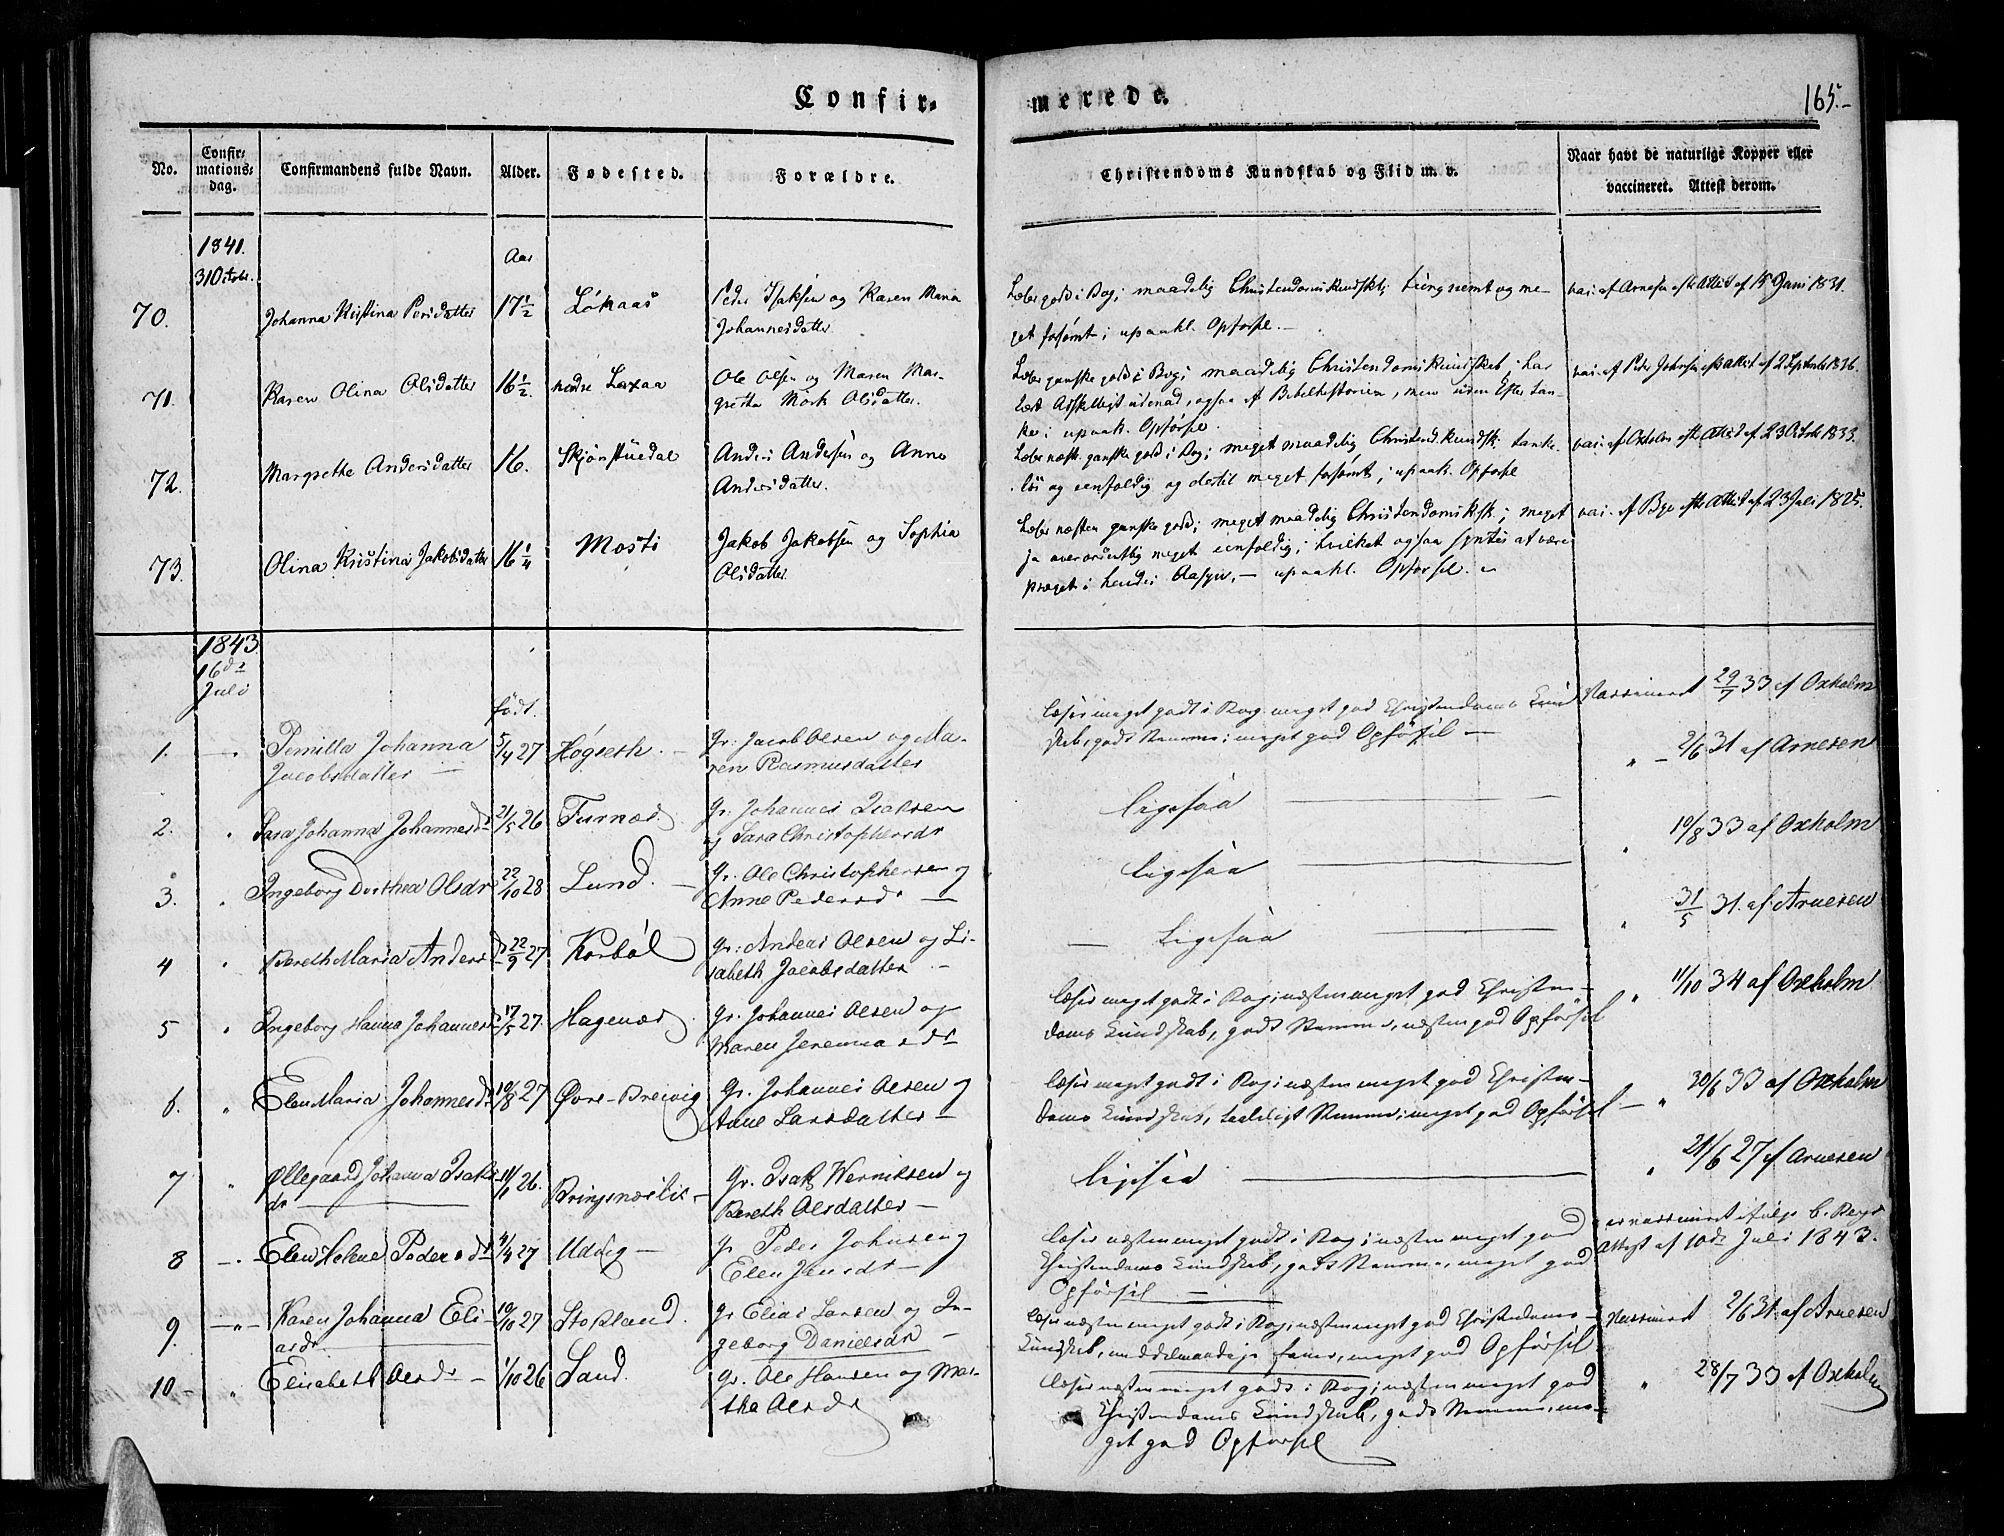 Confir-
merede.
165.-
No.
Confir-
mations-
dag.
Confirmandens fulde Navn.
Alder.
Fødested.
Forældre.
Christendoms Kundskab og Flid m. v.
Naar havt de naturlige Kopper eller
vaccineret. Attest derom.
1841.
31 Octobr.
Aar
70.
Johanna Kristina Persdatter
17 1/2
Løkaas
Peder Isaksen og Karen Maria
Johannesdatter
Læser godt i Bog; maadelig Christendomskundsk; tungnemt og me-
get forsømt; upaakl. Opførsel. -
vac. af Arnesen efter Attest af 15 Juni 1831.
71.
Karen Olina Olsdatter
16 1/2.
nedre Laxaa
Ole Olsen og Maren Mar-
grethe Mork Olsdatter.
Læser ganske godt i Bog; maadelig Christendomskundskab; har
lært Adskilligt udenad, ogsaa af Bibelhistorien, men uden Eftertan-
ke; upaak. Opførsel.
vac. af Peder Johnsen efter Attest af 2 Septembr 1836.
72.
Margrethe Andersdatter
16.
Skjønstuedal
Anders Andersen og Anne
Andersdatter.
Læser næst. ganske godt i Bog; meget maadelig Christend.kundsk. tanke-
løs og eenfoldig og dertil meget forsømt; upaak. Opførsel
vac. af Oxholm efter Attest af 23 Octobr 1833.
73.
Olina Kristina Jakobsdatter
16 1/4
Moste
Jakob Jakobsen og Sophia
Olsdatter.
Læser næsten ganske godt; meget maadelig Christendomsk.; meget
ja overordentlig meget eenfoldig; hvilket ogsaa synes at være
præget i hendes Aasyn, - upaakl. Opførsel.
vac. af Bye efter Attest af 23 Juli 1825.
1843
16de
Juli
født.
1.
Pernilla Johanna
Jacobsdatter
5/4 27
Høgseth.
Gr. Jacob Olsen og Ma-
ren Rasmusdatter
læser meget godt i Bog meget god Christendoms Kund
skab, godt Nemme; meget god Opførsel
Vaccineret 29/7 33 af Oxholm
2.
Sara Johanna Johannesdr
21/5 26
Furnæs.
Gr. Johannes Isaksen
og Sara Christophersdr
ligesaa
" - 2/6 31 af Arnesen
3.
Ingeborg Dorthea Olsdr
22/10 28
Lund.
Gr. Ole Christophersen og
Anne Pedersdr
ligesaa
" 10/8 33 af Oxholm
4
Bereth Maria Andersd
22/9 27
Korbøl
Gr. Andreas Olsen og Li-
sabeth Jacobsdatter.
Ligesaa
" 31/5 31. af Arnesen
5
Ingeborg Hanna Johannesd
17/5 27.
Hagenæs
Gr. Johannes Olsen og
Maren Jeremiasdr
læser meget godt i Bog; næsten meget god Christen-
doms Kundskab, godt Nemme, næsten god Opførsel
" 11/10 34 af Oxholm
6.
Elen Maria Johannesdr
10/8 27
Øvre-Breivig
Gr. Johannes Olsen og
Anne Larsdatter
læser meget godt i Bog; næsten meget god Christen-
doms Kundskab, taaleligt Nemme; meget god Opførsel
" 30/6 33 af Oxholm
7
Øllegaard Johanna Isaks
dr
11/1 26.
Bringsnæslie
Gr. Isak Werniksen og
Bereth Olsdatter
ligesaa
" 21/6 27 af Arnesen
8
Elen Helene Pedersdr
4/4 27
Uddig
Gr Peder Johnsen og
Elen Jensdr
læser næsten meget godt i Bog; næsten meget god
Christendoms Kundskab, godt Nemme, meget god
Opførsel
er vaccineret ifølge b. Regs
Attest af 10de Juli 1843.
9.
Karen Johanna Eli-
asdr
19/10 27
Stokland.
Gr Elias Larsen og In-
geborg Danielsdr
læser næsten meget godt i Bog, næsten meget god Christendoms
Kundskab, meget god Opførsel
Vaccineret 2/6 31. af Arnesen
10-
Elisabeth Olsdr
1/10 26
Sand.
Gr. Ole Hansen og Mar-
tha Olsdr
læser næsten meget godt i Bog; næsten meget god
Christendoms Kundskab, godt Nemme, me-
get god Opførsel
" 28/7 33 af Oxholm